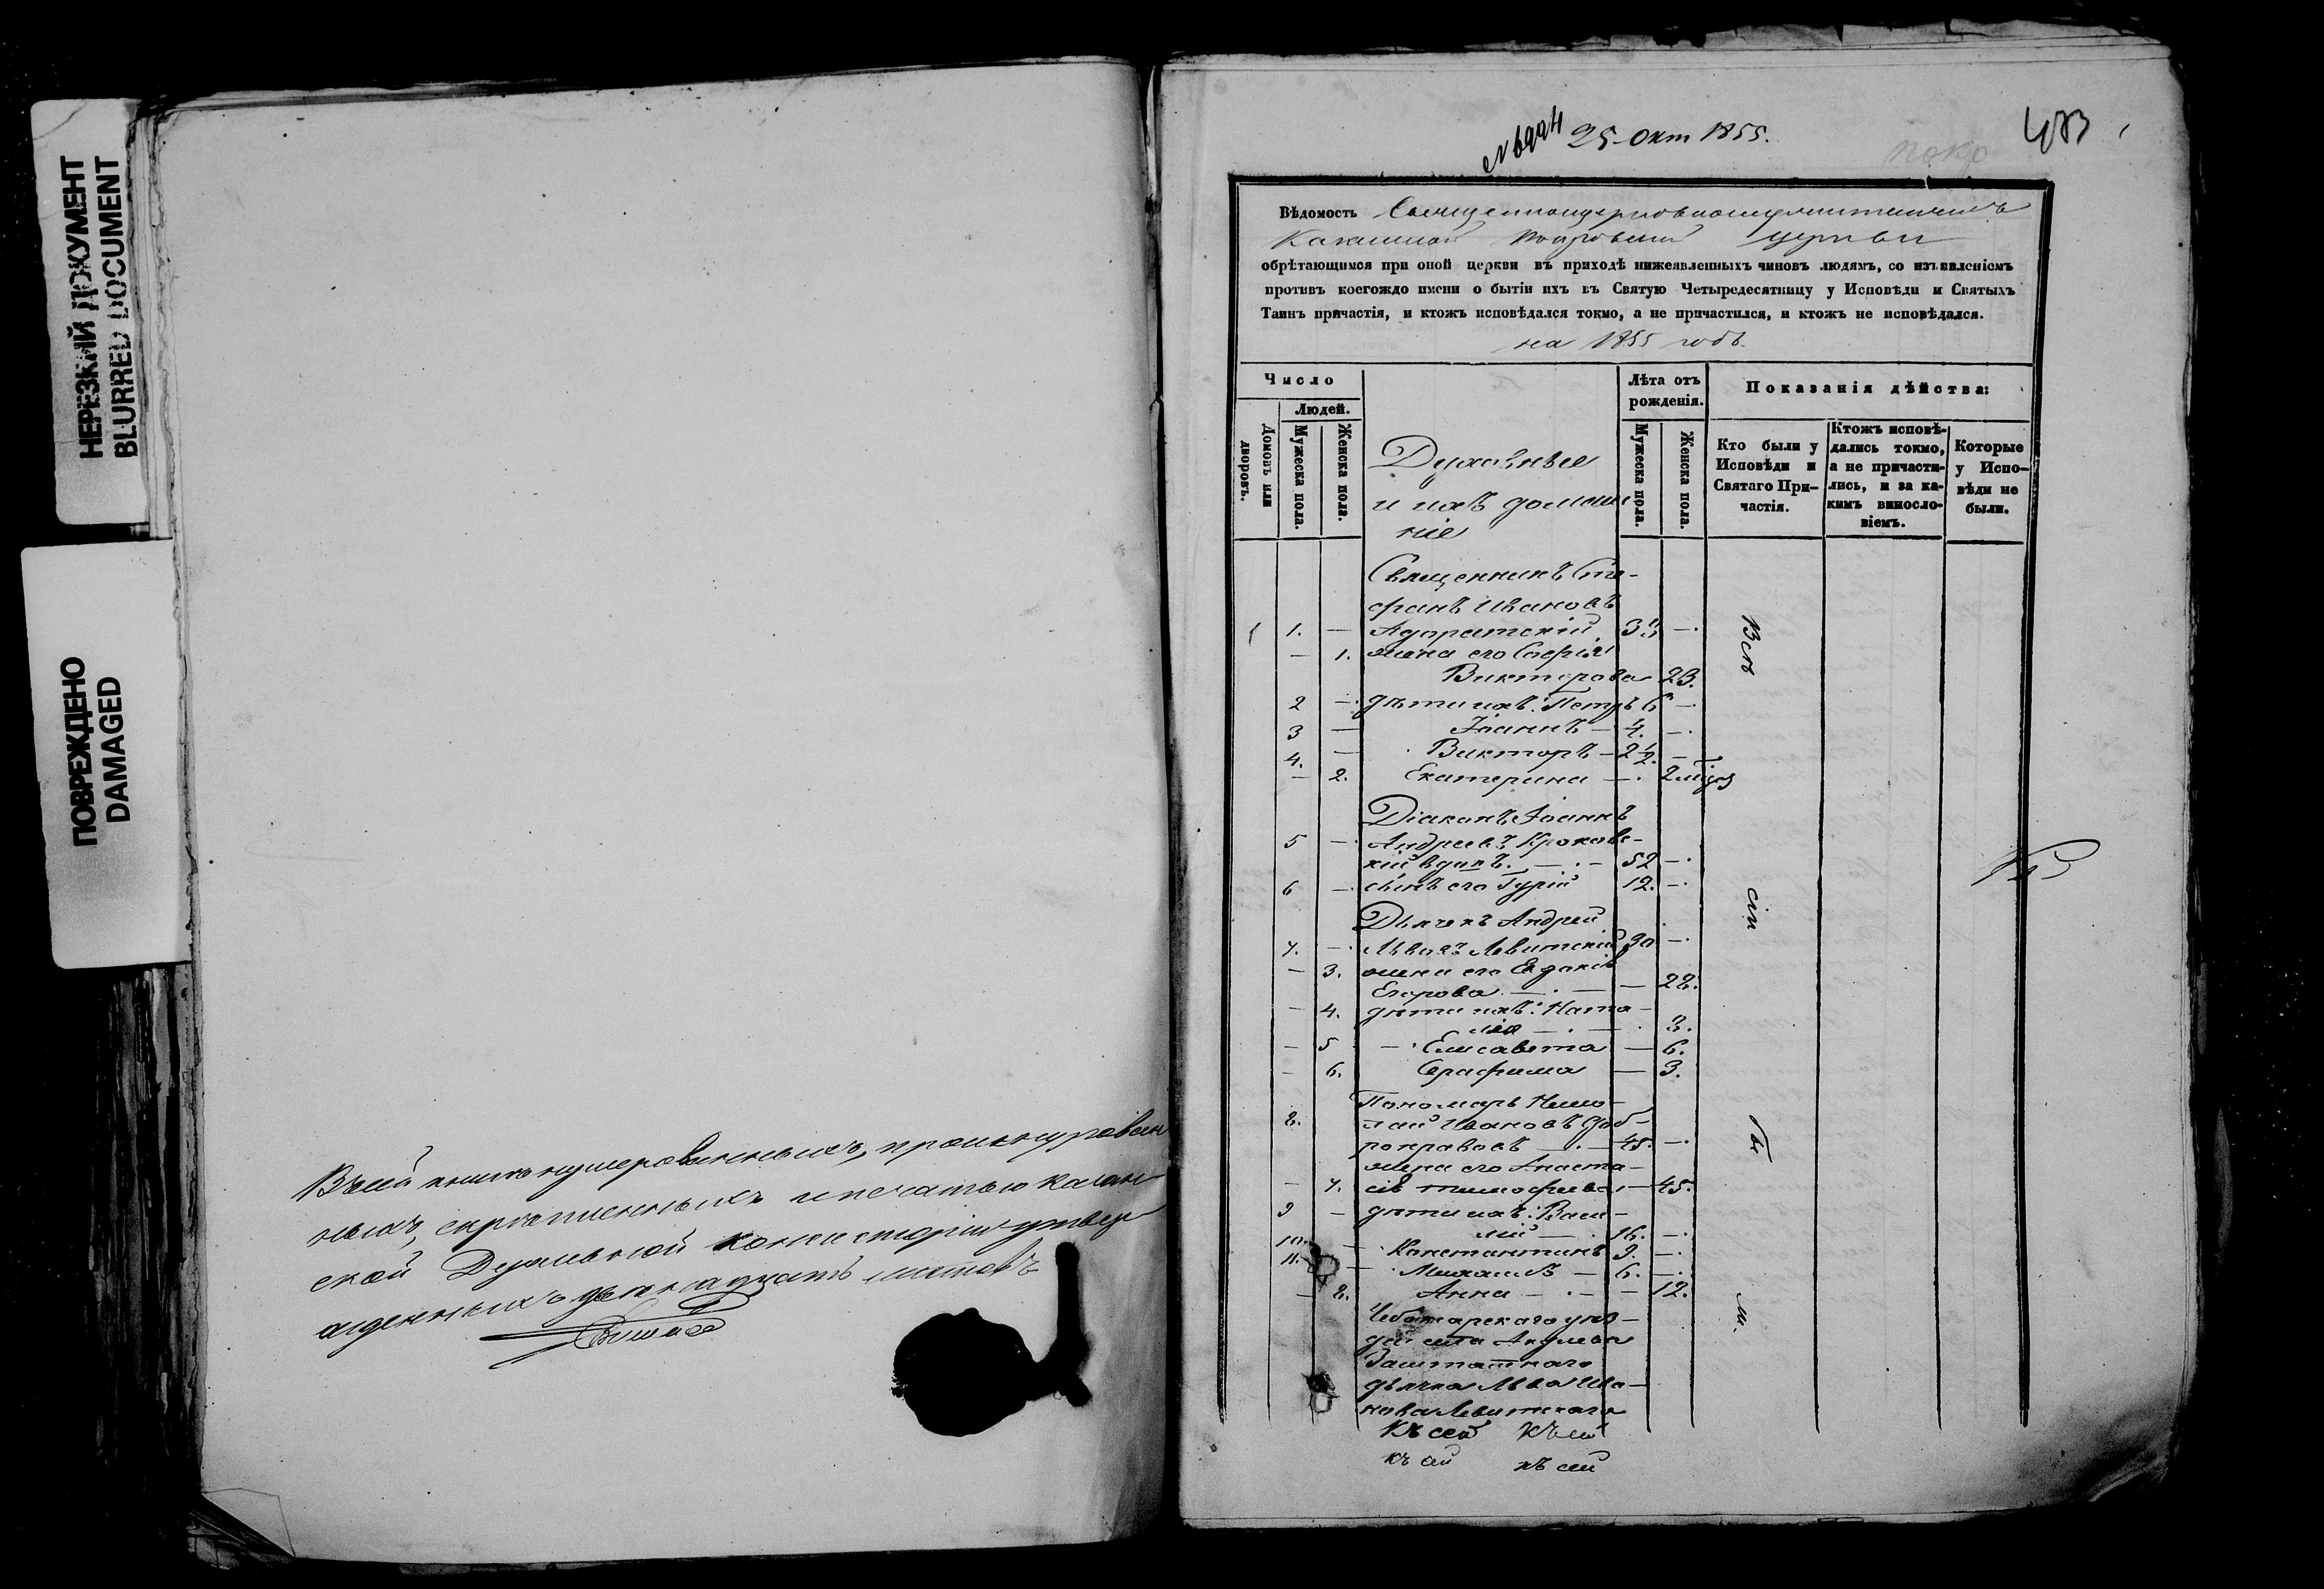 НЕРЕЗКИЙ ДОКУМЕНТ
BLURRED DOCUMENT
ПОВРЕЖДЕНО
DAMAGED
Въ сей книгѣ нумерованныхъ, прошнурован
ныхъ, скрѣпленныхъ и печатью Казан
ской Духовной Консисторіи утвер
жденныхъ двенадцать листовъ
25 Окт 1855.
483
покр
Вѣдомость
церкви
обрѣтающимся при оной церкви въ приходѣ нижеявленныхъ чиновъ людямъ, со изъявленіемъ
противъ коегождо имени о бытіи ихъ въ Святую Четыредесятницу у Исповѣди и Святыхъ
Таинъ причастія, и ктожъ исповѣдался токмо, а не причастился, и ктожъ не исповѣдался.
на 1855 годъ.
Число
Людей.
Домовъ или дворовъ.
Мужеска пола.
Женска пола.
Лѣта отъ рожденія.
Мужеска пола.
Женска пола.
Показанія дѣйства:
Кто были у Исповѣди и Святаго При-частія.
Ктожъ исповѣ-дались токмо, а не причасти-лись, и за ка-кимъ винословіемъ.
Которые у Испо-вѣди не были.
Духовные
и ихъ домаш
ніе
Священникъ Сте-
фанъ Ивановъ
1 1. — Адоратскій —.
— 1. жена его Софія
Викторова 23.
2 —. дѣти ихъ: Петръ 6 —.
3 — Іоаннъ — 4. —.
4. — Викторъ — 2 1/2. —
— 2. Екатерина —.
Діаконъ Іоаннъ
5 —. Андреевъ Кроковс-
кій вдовъ. — 52 —.
6 —. сынъ его Гурій 12. —.
Дьячекъ Андрей
7. —. Львовъ Левитскій 30 —.
— 3. жена его Евдокія
Егорова — 28.
— 4. дѣти ихъ: Ната-
лія — 8.
— 5 Елисавета — 6.
— 6. Серафима — 3.
Пономарь Нико-
8. лай Ивановъ Доб-
ронравовъ — 45. —.
жена его Анаста-
— 7. сія Тимофеева — 45.
9 — дѣти ихъ: Васи-
лій — 16. —.
10. — Константинъ 9. —.
11. — Михаилъ — 6. —.
— 8. Анна — 12.
Чебоксарскаго уѣз-
да села Акулева
Заштатнаго
дьячка Льва Ива-
нова Левитскаго
Всѣ
сіи
бы
ли.
Къ сей Къ сей
къ сей къ сей